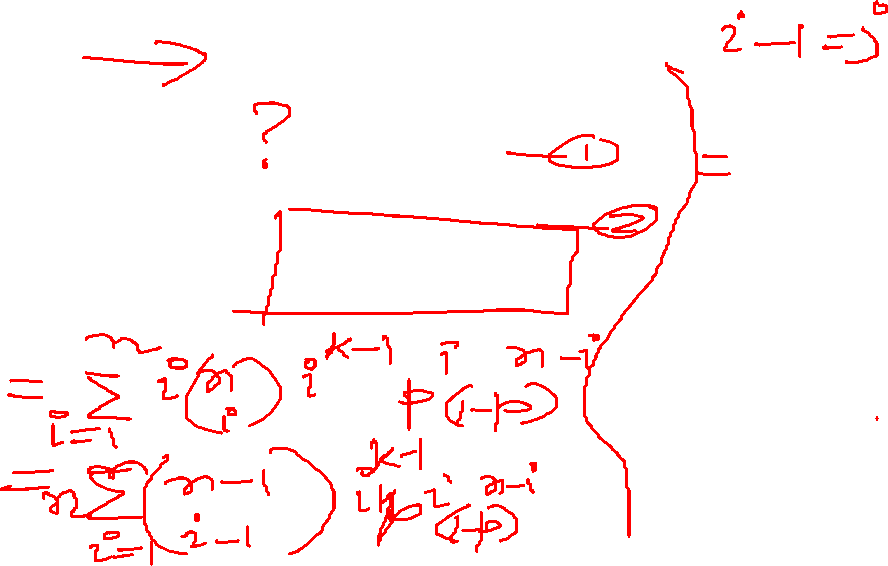 i - 1 = j
?
— ①
=
— ②
= ∑_{i=1}^{n} i \binom{n}{i} i^{k-1} p^{i} (1-p)^{n-i}
= n ∑_{i=1}^{n} \binom{n-1}{i-1} i^{k-1} p^{i} (1-p)^{n-i}